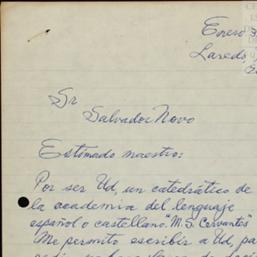 Enero 3
Laredo,
Sr
Salvador Novo
Estimado maestro:
Por ser Ud, un catedrático de
la academia del lenguaje
español o castellano "M. S. Cervantes"
Me permito escribir a Ud, pa